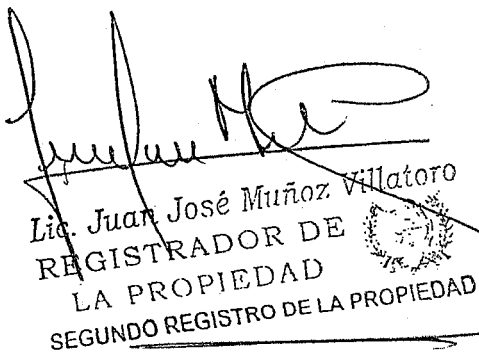 Lic. Juan José Muñoz Villatoro
REGISTRADOR DE
LA PROPIEDAD
SEGUNDO REGISTRO DE LA PROPIEDAD